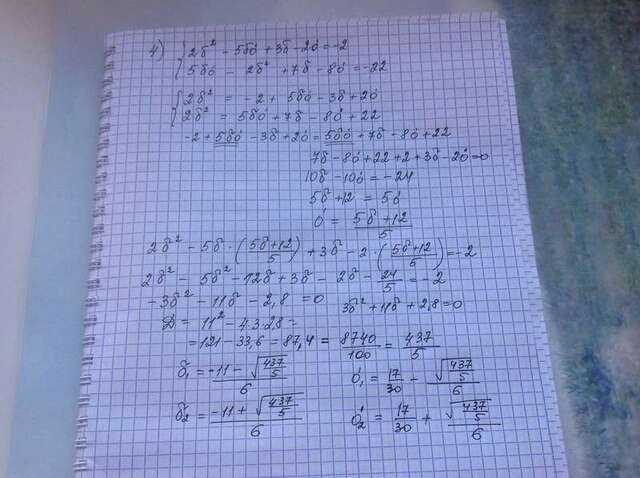 4) { 2б² - 5бó + 3б - 2ó = -2
5бó - 2б² + 7б - 8ó = -22
{ 2б² = -2 + 5бó - 3б + 2ó
2б² = 5бó + 7б - 8ó + 22
-2 + 5бó - 3б + 2ó = 5бó + 7б - 8ó + 22
7б - 8ó + 22 + 2 + 3б - 2ó = 0
10б - 10ó = -24
5б + 12 = 5ó
ó = (5б + 12)/5
2б² - 5б · ((5б + 12)/5) + 3б - 2 · ((5б + 12)/5) = -2
2б² - 5б² - 12б + 3б - 2б - 24/5 = -2
-3б² - 11б - 2,8 = 0 3б² + 11б + 2,8 = 0
D = 11² - 4·3·2,8 =
= 121 - 33,6 = 87,4 = 8740/100 = 437/5
б₁ = (-11 - √(437/5))/6 ó₁ = 17/30 - √(437/5)/6
б₂ = (-11 + √(437/5))/6 ó₂ = 17/30 + √(437/5)/6